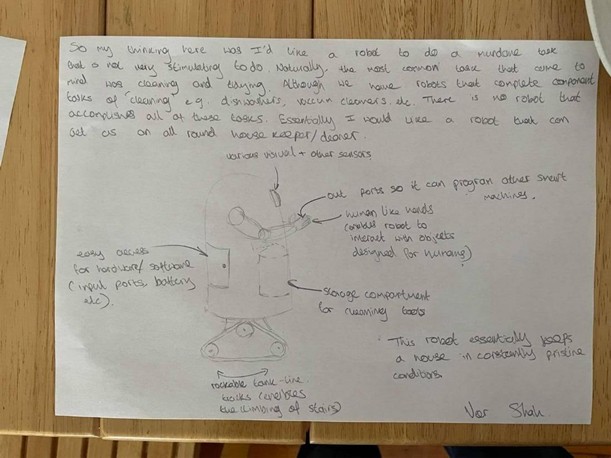 So my thinking here was I'd like a robot to do a mundane task
that is not very stimulating to do. Naturally, the most common task that came to
mind was cleaning and tidying. Although we have robots that complete component
tasks of "cleaning" e.g. dishwashers, vaccum cleaners, etc. There is no robot that
accomplishes all of these tasks. Essentially I would like a robot that can
act as an all round house keeper/cleaner.
various visual + other sensors
out ports so it can program other smart
machines.
human like hands
(enables robot to
interact with objects
designed for humans)
easy access
for hardware/software
(input ports, battery
etc).
storage compartment
for cleaning tools
This robot essentially keeps
a house in constantly pristine
condition.
rockable tank-like
(enables
the climbing of stairs)
Shah